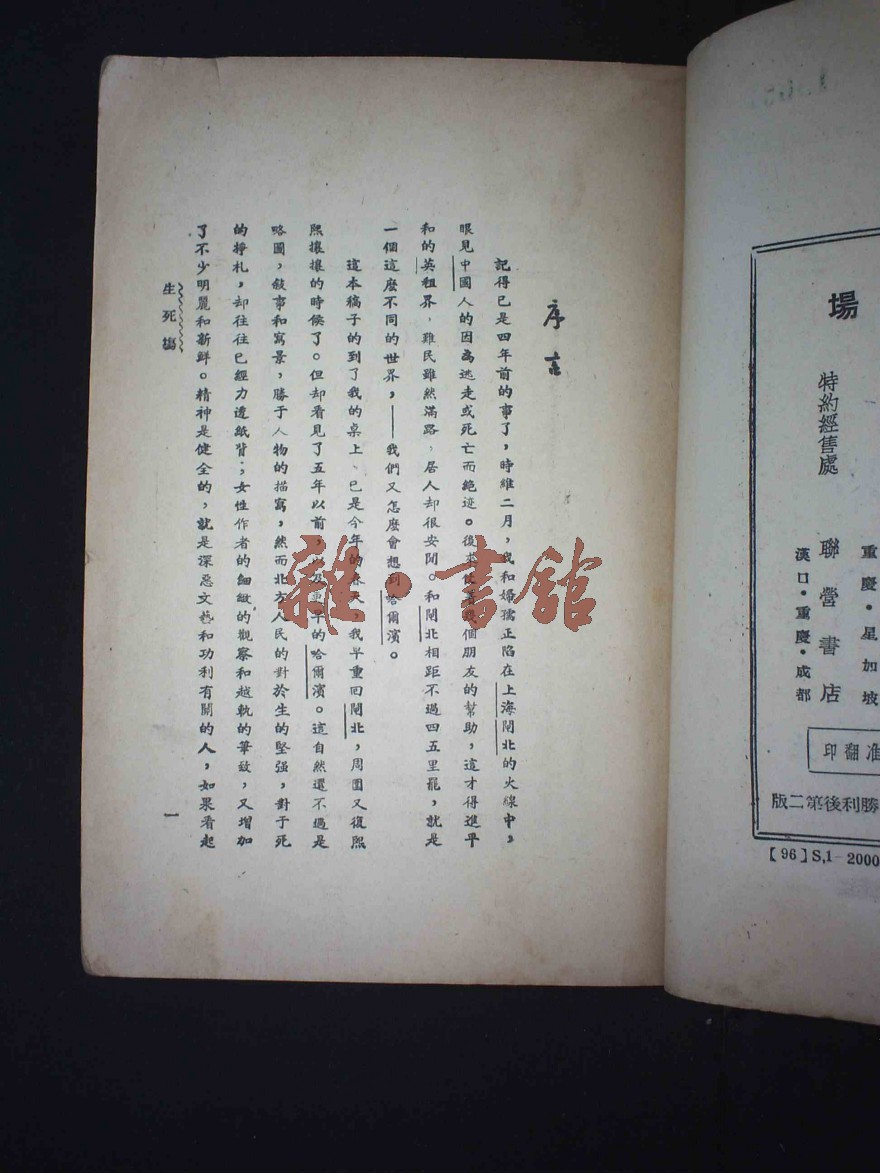 場
重慶・星加坡
特約經售處 聯營書店
漢口・重慶・成都
准翻印
勝利後第二版
【96】S,1—2000
序言
記得已是四年前的事了，時維二月，我和婦孺正陷在上海閘北的火線中，
眼見中國人的因為逃走或死亡而絕迹。後來個朋友的幫助，這才得進平
和的英租界，難民雖然滿路，居人却很安閑。和閘北相距不過四五里罷，就是
一個這麽不同的世界，——我們又怎麽會想到哈爾濱。
這本稿子的到了我的桌上、已是今年的春天，我早重回閘北，周圍又復熙
熙攘攘的時候了。但却看見了五年以前，以及更早的哈爾濱。這自然還不過是
略圖，敍事和寫景，勝于人物的描寫，然而北方人民的對於生的堅强，對于死
的掙札，却往往已經力透紙背；女性作者的細緻的觀察和越軌的筆致，又增加
了不少明麗和新鮮。精神是健全的，就是深惡文藝和功利有關的人，如果看起
生死場
一
雜・書館